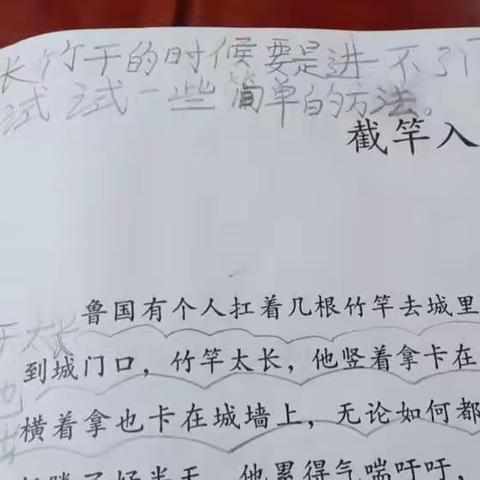 长竹干的时候要是进不了门
试试一些简单的方法。
截竿入
鲁国有个人扛着几根竹竿去城里
干太长
到城门口，竹竿太长，他竖着拿卡在
也
横着拿也卡在城墙上，无论如何都
了好半天，他累得气喘吁吁，